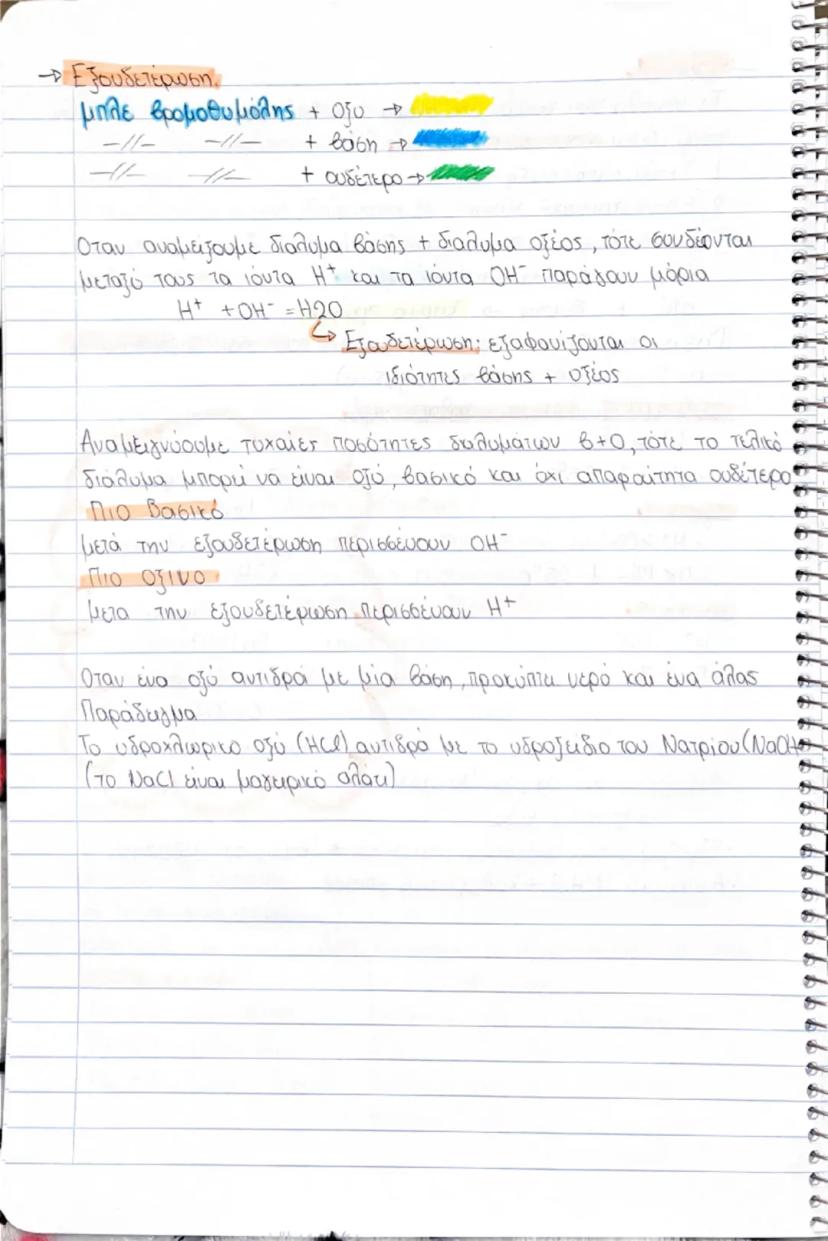 → Εξουδετέρωση.
μπλε βρομοθυμόλης + οξυ →
-//- -//- + βάση →
-//- -//- + ουδέτερο →
Οταν αναμείζουμε διάλυμα βάσης + διάλυμα οξέος, τότε συνδέονται
μεταξύ τους τα ιόντα H⁺ και τα ιόντα OH⁻ παράγουν μόρια
H⁺ + OH⁻ = H2O
Εξουδετέρωση: εξαφανίζονται οι
ιδιότητες βάσης + οξέος
Αναμειγνύουμε τυχαίες ποσότητες διαλυμάτων β+Ο, τότε το τελικό
διάλυμα μπορεί να είναι οξύ, βασικό και όχι απαραίτητα ουδέτερο
Πιο βασικό
μετά την εξουδετέρωση περισσεύουν OH⁻
Πιο οξινο
μετα την εξουδετέρωση περισσεύουν H⁺
Οταν ένα οξύ αντιδρά με μία βάση, προκύπτει νερό και ένα άλας
Παράδειγμα
Το υδροχλωρικο οξύ (HCl) αντιδρά με το υδροξείδιο του Νατρίου (NaOH
(το NaCl είναι μαγειρικό αλάτι)